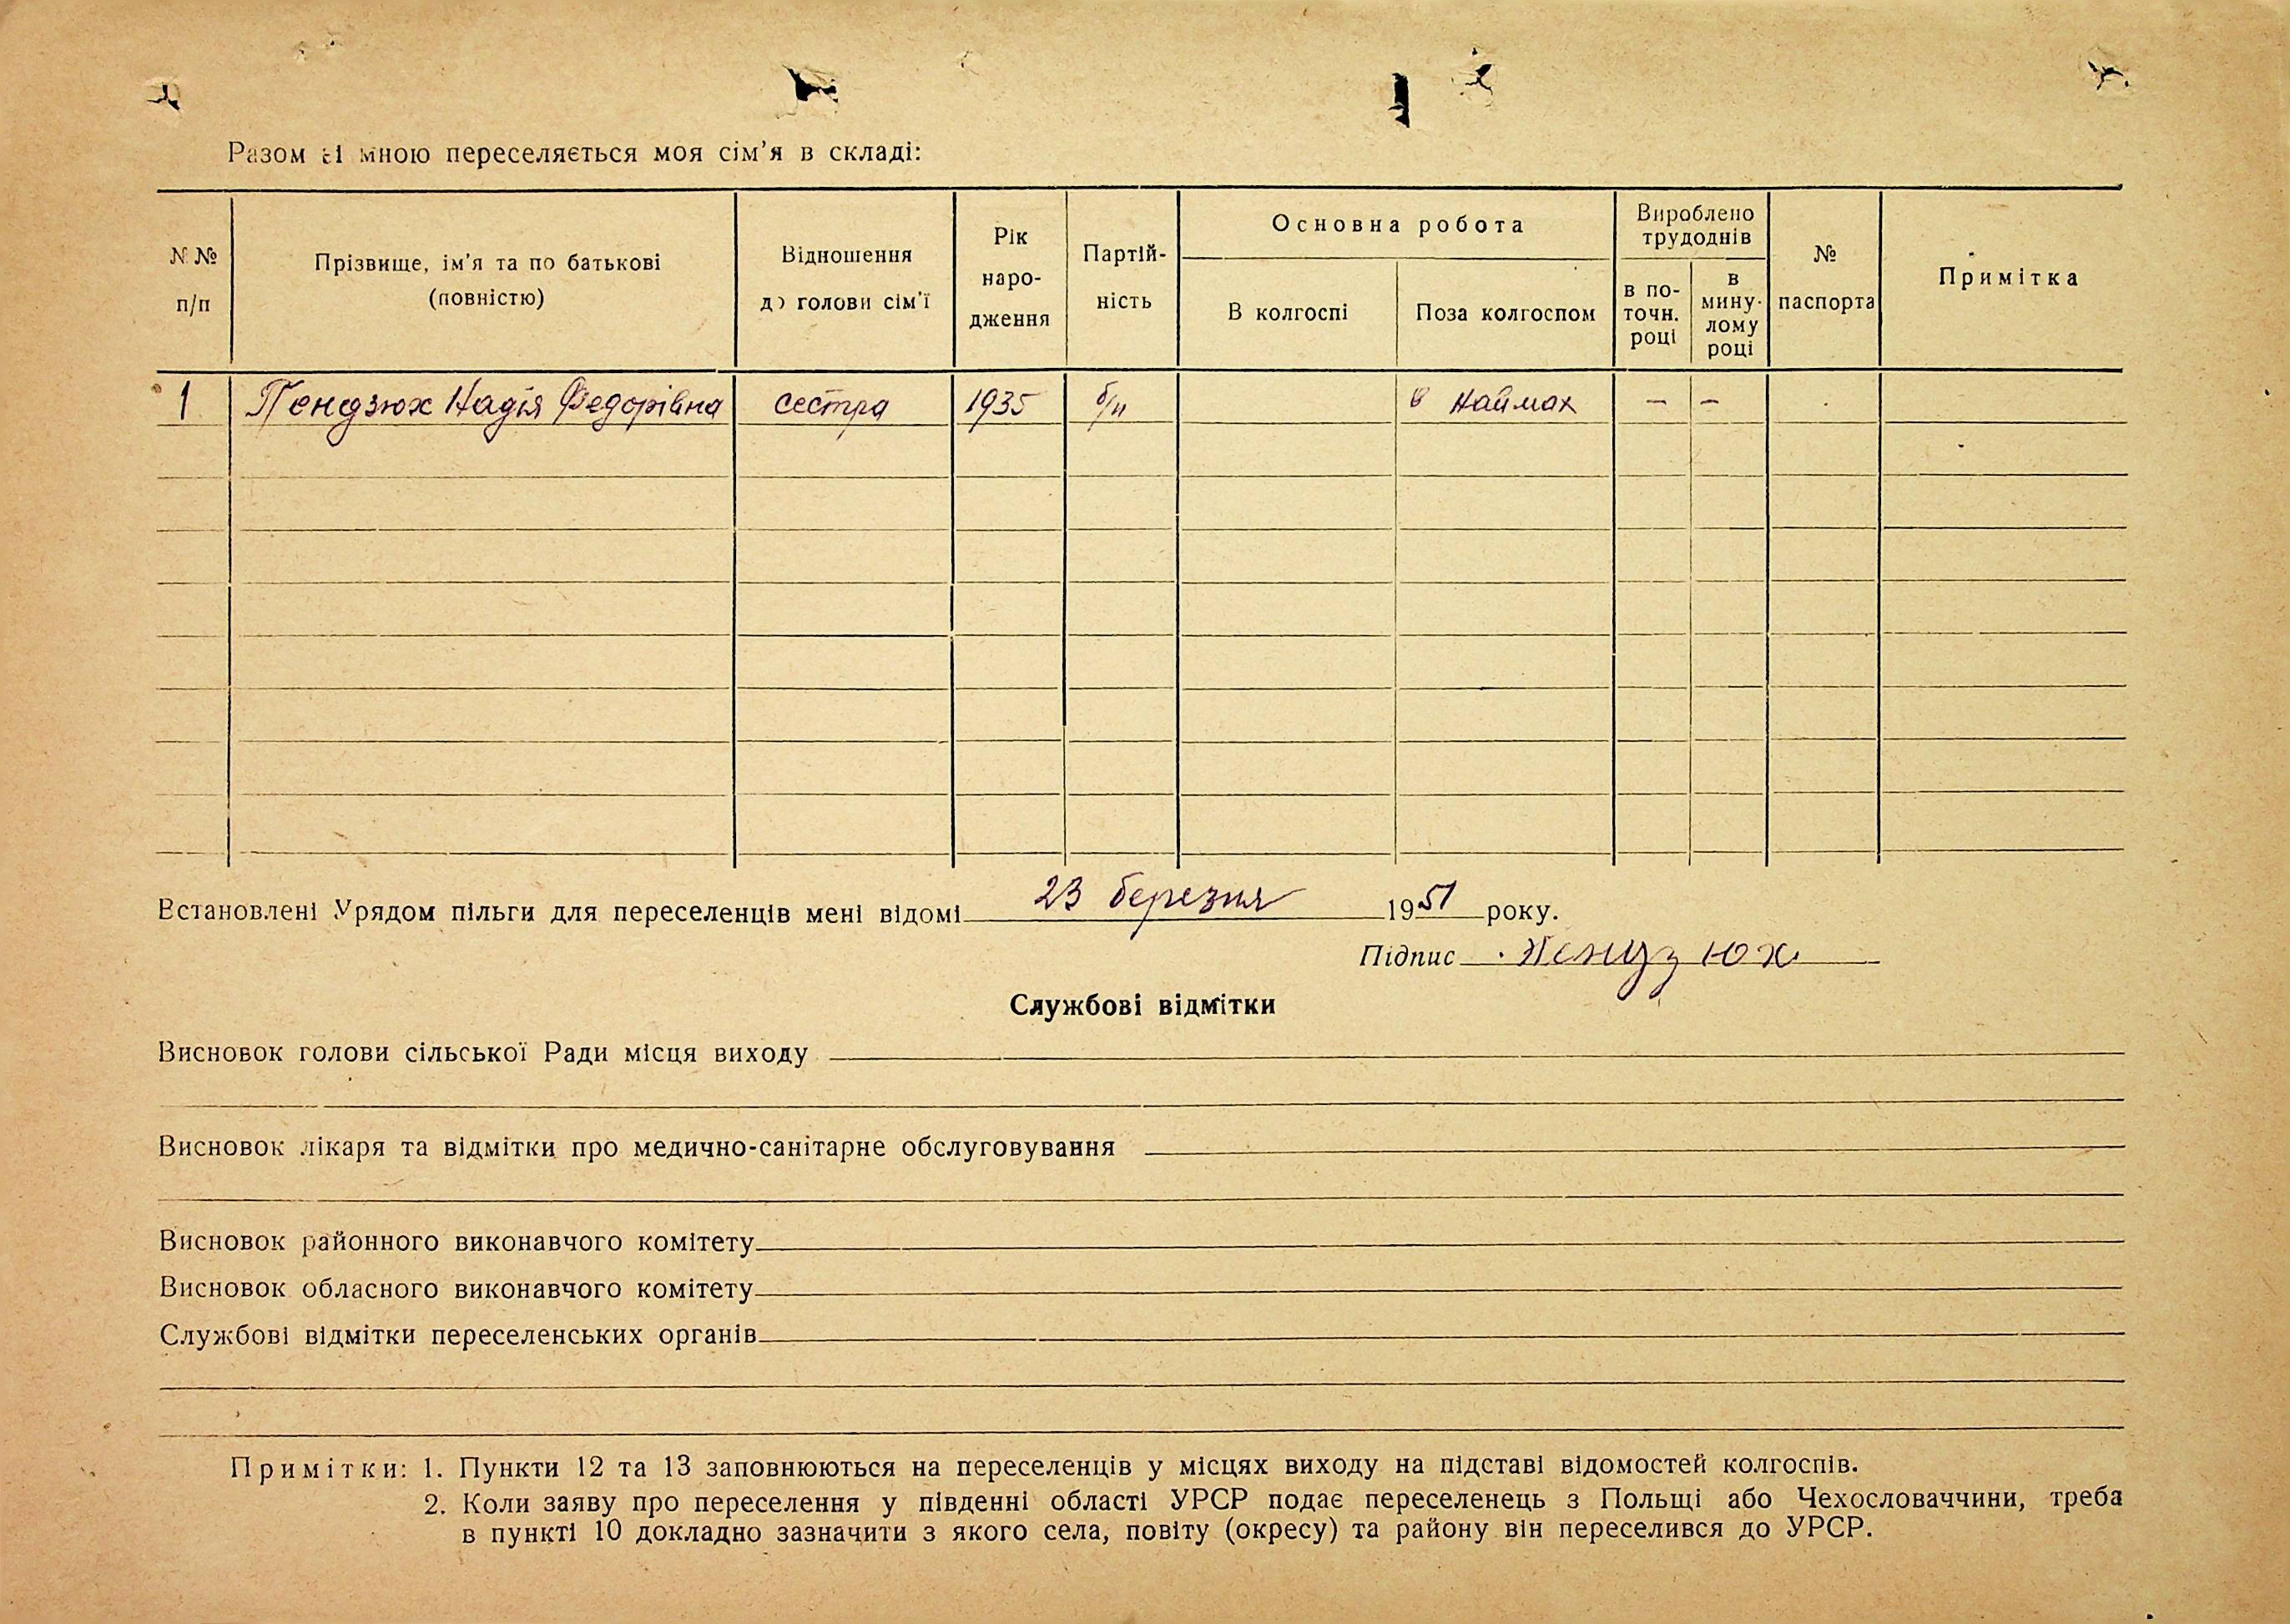 Разом зі мною переселяється моя сім’я в складі:
№№ п/п | Прізвище, ім’я та по батькові (повністю) | Відношення до голови сім’ї | Рік народження | Партійність | Основна робота | Вироблено трудоднів | № паспорта | Примітка
В колгоспі | Поза колгоспом | в поточн. році | в минулому році
1 | Пендзюх Надія Федорівна | сестра | 1935 | б/п | | в наймах | – | –
Встановлені Урядом пільги для переселенців мені відомі 23 березня 1951 року.
Підпис Пендзюх
Службові відмітки
Висновок голови сільської Ради місця виходу
Висновок лікаря та відмітки про медично-санітарне обслуговування
Висновок районного виконавчого комітету
Висновок обласного виконавчого комітету
Службові відмітки переселенських органів
Примітки: 1. Пункти 12 та 13 заповнюються на переселенців у місцях виходу на підставі відомостей колгоспів.
2. Коли заяву про переселення у південні області УРСР подає переселенець з Польщі або Чехословаччини, треба
в пункті 10 докладно зазначити з якого села, повіту (окресу) та району він переселився до УРСР.